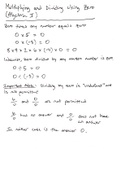 Multiplying and Dividing Using Zero
(Algebra I)
Zero times any number equals zero
0 × 5 = 0
0 × (-3) = 0
8 × 4 × 2 × 6 × (-9) × 0 = 0
Likewise, zero divided by any certain number is zero
0 ÷ 5 = 0
0 ÷ (-3) = 0
Important Note: Dividing by zero is "undefined" and
is not permitted
and are not permitted
has no answer and does not have
an answer
So neither one is the answer 0.